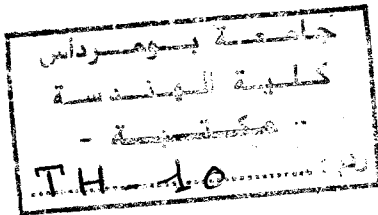 جامعة بومرداس
كلية الهندسة
- مكتبة -
رقم: TH-10